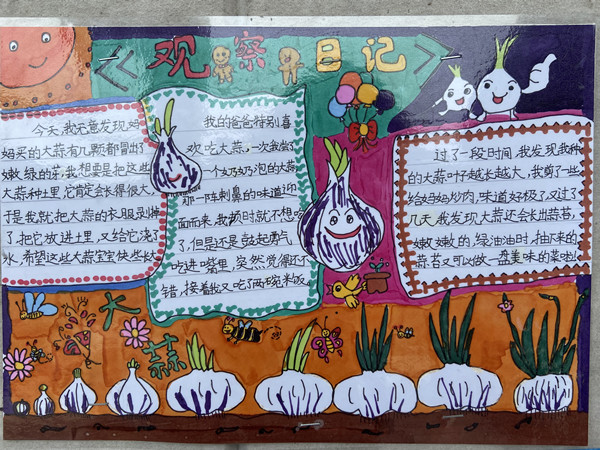 《观察日记》
今天,我无意发现妈
妈买的大蒜有几颗都冒出了
嫩绿的芽,我想要是把这些
大蒜种土里,它肯定会长得很大,
于是我就把大蒜的衣服剥掉
了,把它放进土里,又给它浇了
水,希望这些大蒜宝宝快些长大
我的爸爸特别喜
欢吃大蒜,一次我尝了
一个奶奶泡的大蒜
那一阵刺鼻的味道迎
面而来,我顿时就不想吃
了,但是还是鼓起勇气
吃进嘴里,突然觉得还不
错,接着我又吃了两碗米饭
过了一段时间,我发现我种
的大蒜叶子越长越大,我剪了一些
给妈妈炒肉,味道好极了,又过了
几天,我发现大蒜还会长出蒜苔,
嫩嫩的,绿油油时,抽下来的
蒜苔又可以做一盘美味的菜啦!
大
蒜